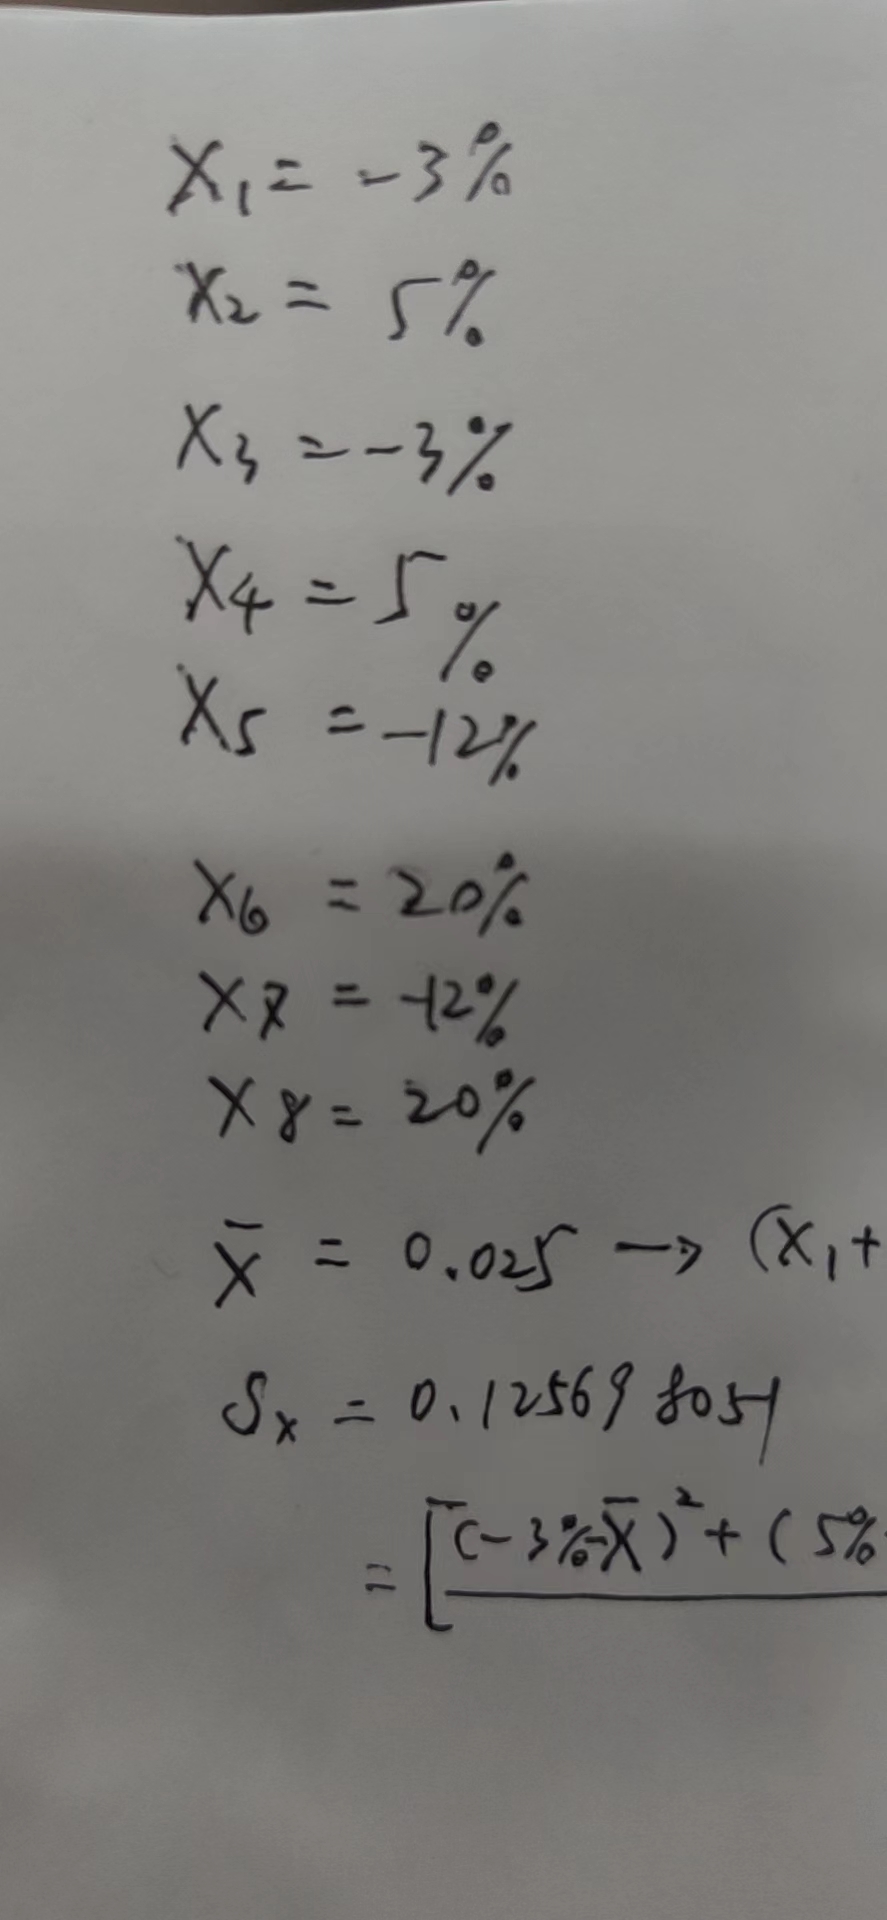 X₁ = -3%
X₂ = 5%
X₃ = -3%
X₄ = 5%
X₅ = -12%
X₆ = 20%
X₇ = -12%
X₈ = 20%
X̄ = 0.025 → (X₁+
Sₓ = 0.125698051
= [(-3%-X̄)²+(5%